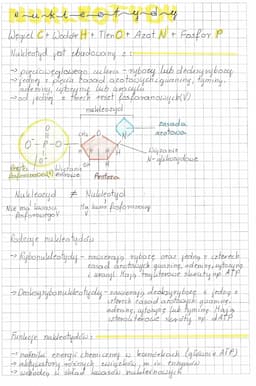 nukleotydy
Węgiel C + Wodór H + Tlen O + Azot N + Fosfor P
Nukleotyd jest zbudowany z:
→ pięciowęglowego cukru - rybozy lub deoksyrybozy
→ jednej z pięciu zasad azotowych: guaniny, tyminy,
adeniny, cytozyny lub uracylu
→ od jednej do trzech reszt fosforanowych (V)
nukleozyd
zasada
azotowa
O
O P O CH₂
O
Wiązanie
N-glikozydowe
Reszta Wiązanie
fosforanowa(V) estrowe
Pentoza
Nukleozyd ≠ Nukleotyd
Nie ma kwasu Ma kwas fosforowy
fosforowego V
Rodzaje nukleotydów
→ Rybonukleotydy - zawierają rybozę oraz jedną z czterech
zasad azotowych guaninę, adeninę, cytozynę
i uracyl. Mają trzyliterowe skróty np. ATP
→ Deoksyrybonukleotydy - zawierają deoksyrybozę i jedną z
czterech zasad azotowych guaninę,
adeninę, cytozynę lub tyminę. Mają
czteroliterowe skróty np. dATP
Funkcje nukleotydów:
→ nośniki energii chemicznej w komórkach (głównie ATP)
→ aktywatory różnych związków, m.in. enzymów
→ wchodzą w skład kwasów nukleinowych